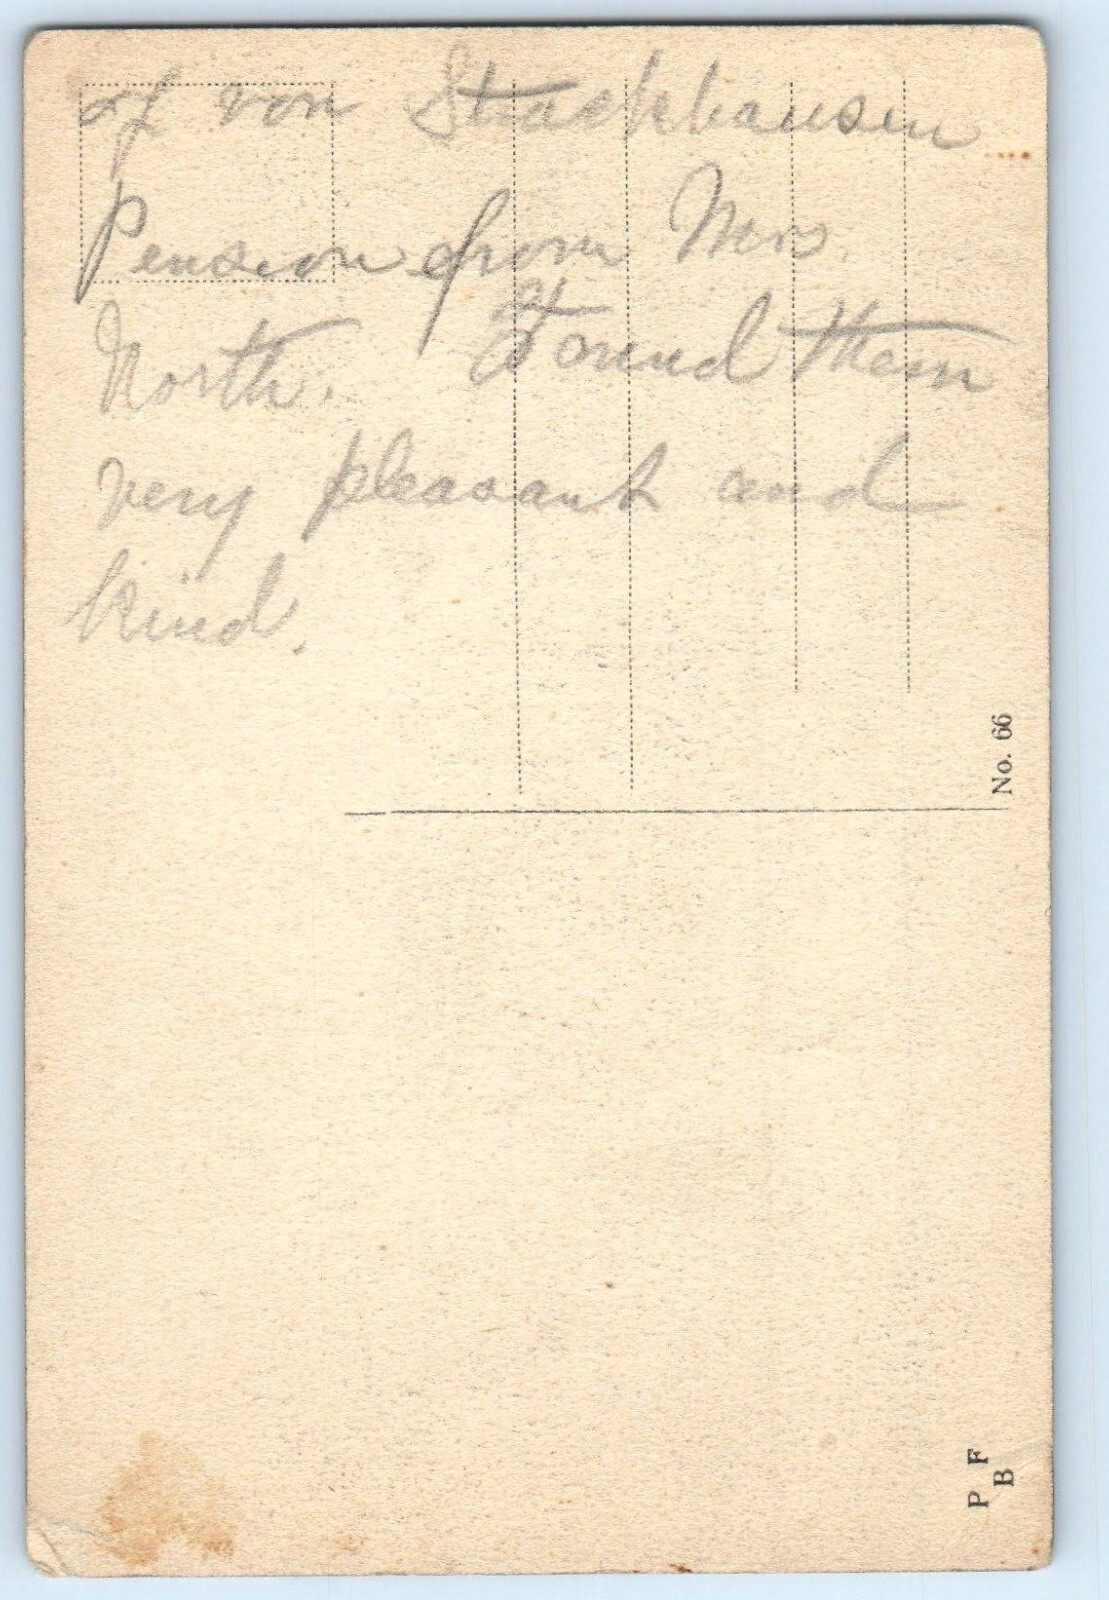 of von Stackhausen
Pension from Mrs.
North. Found them
very pleasant and
kind.
No. 66
P F
B